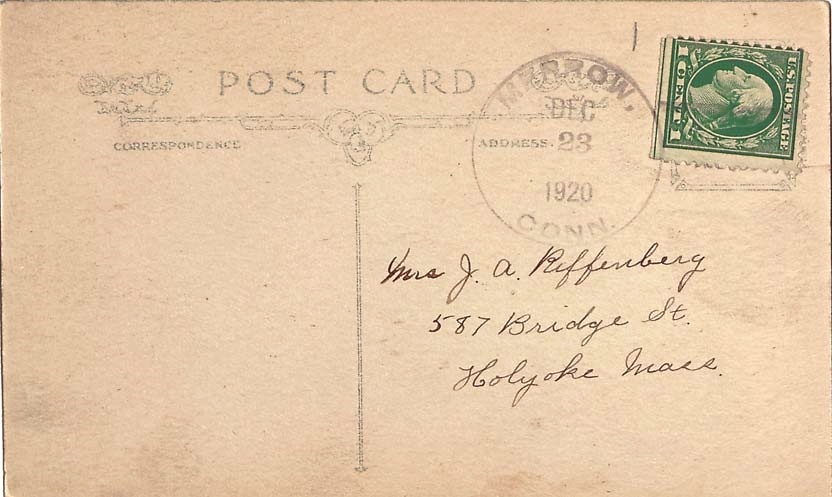 POST CARD
CORRESPONDENCE
ADDRESS.
MERROW,
DEC
23
1920
CONN.
U.S. POSTAGE
1 CENT 1
Mrs J. A. Riffenberg
587 Bridge St.
Holyoke Mass.